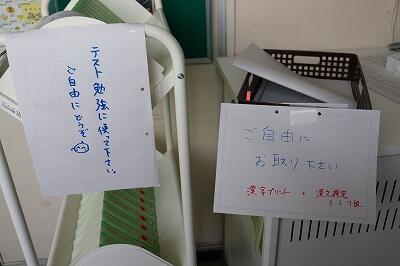 テスト勉強に使って下さい。
ご自由にどうぞ
ご自由に
お取り下さい
漢字プリント + 漢文検定
5.6.7級